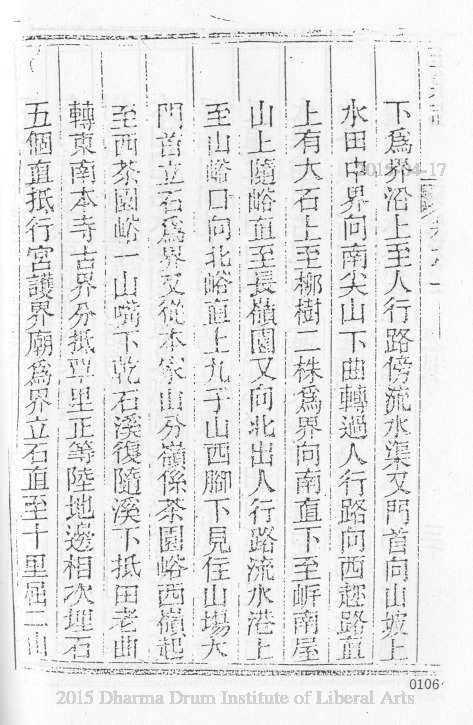 下爲界沿上至人行路傍流水渠又門首向山坡上
水田中界向南尖山下曲轉過人行路向西趂路直
上有大石上至柳樹二株爲界向南直下至嶄南屋
山上隨峪直至長嶺園又向北出人行路流水港上
至山峪口向北峪直上九子山西腳下見住山塲大
門首立石爲界又從本家山分嶺係茶園峪西嶺起
至西茶園峪一山嘴下乾石溪復隨溪下抵田老曲
轉東南本寺古界分抵覃里正等陸地邊相次埋石
五個直抵行宮護界廟爲界立石直至十里屈二山
0106
2015 Dharma Drum Institute of Liberal Arts